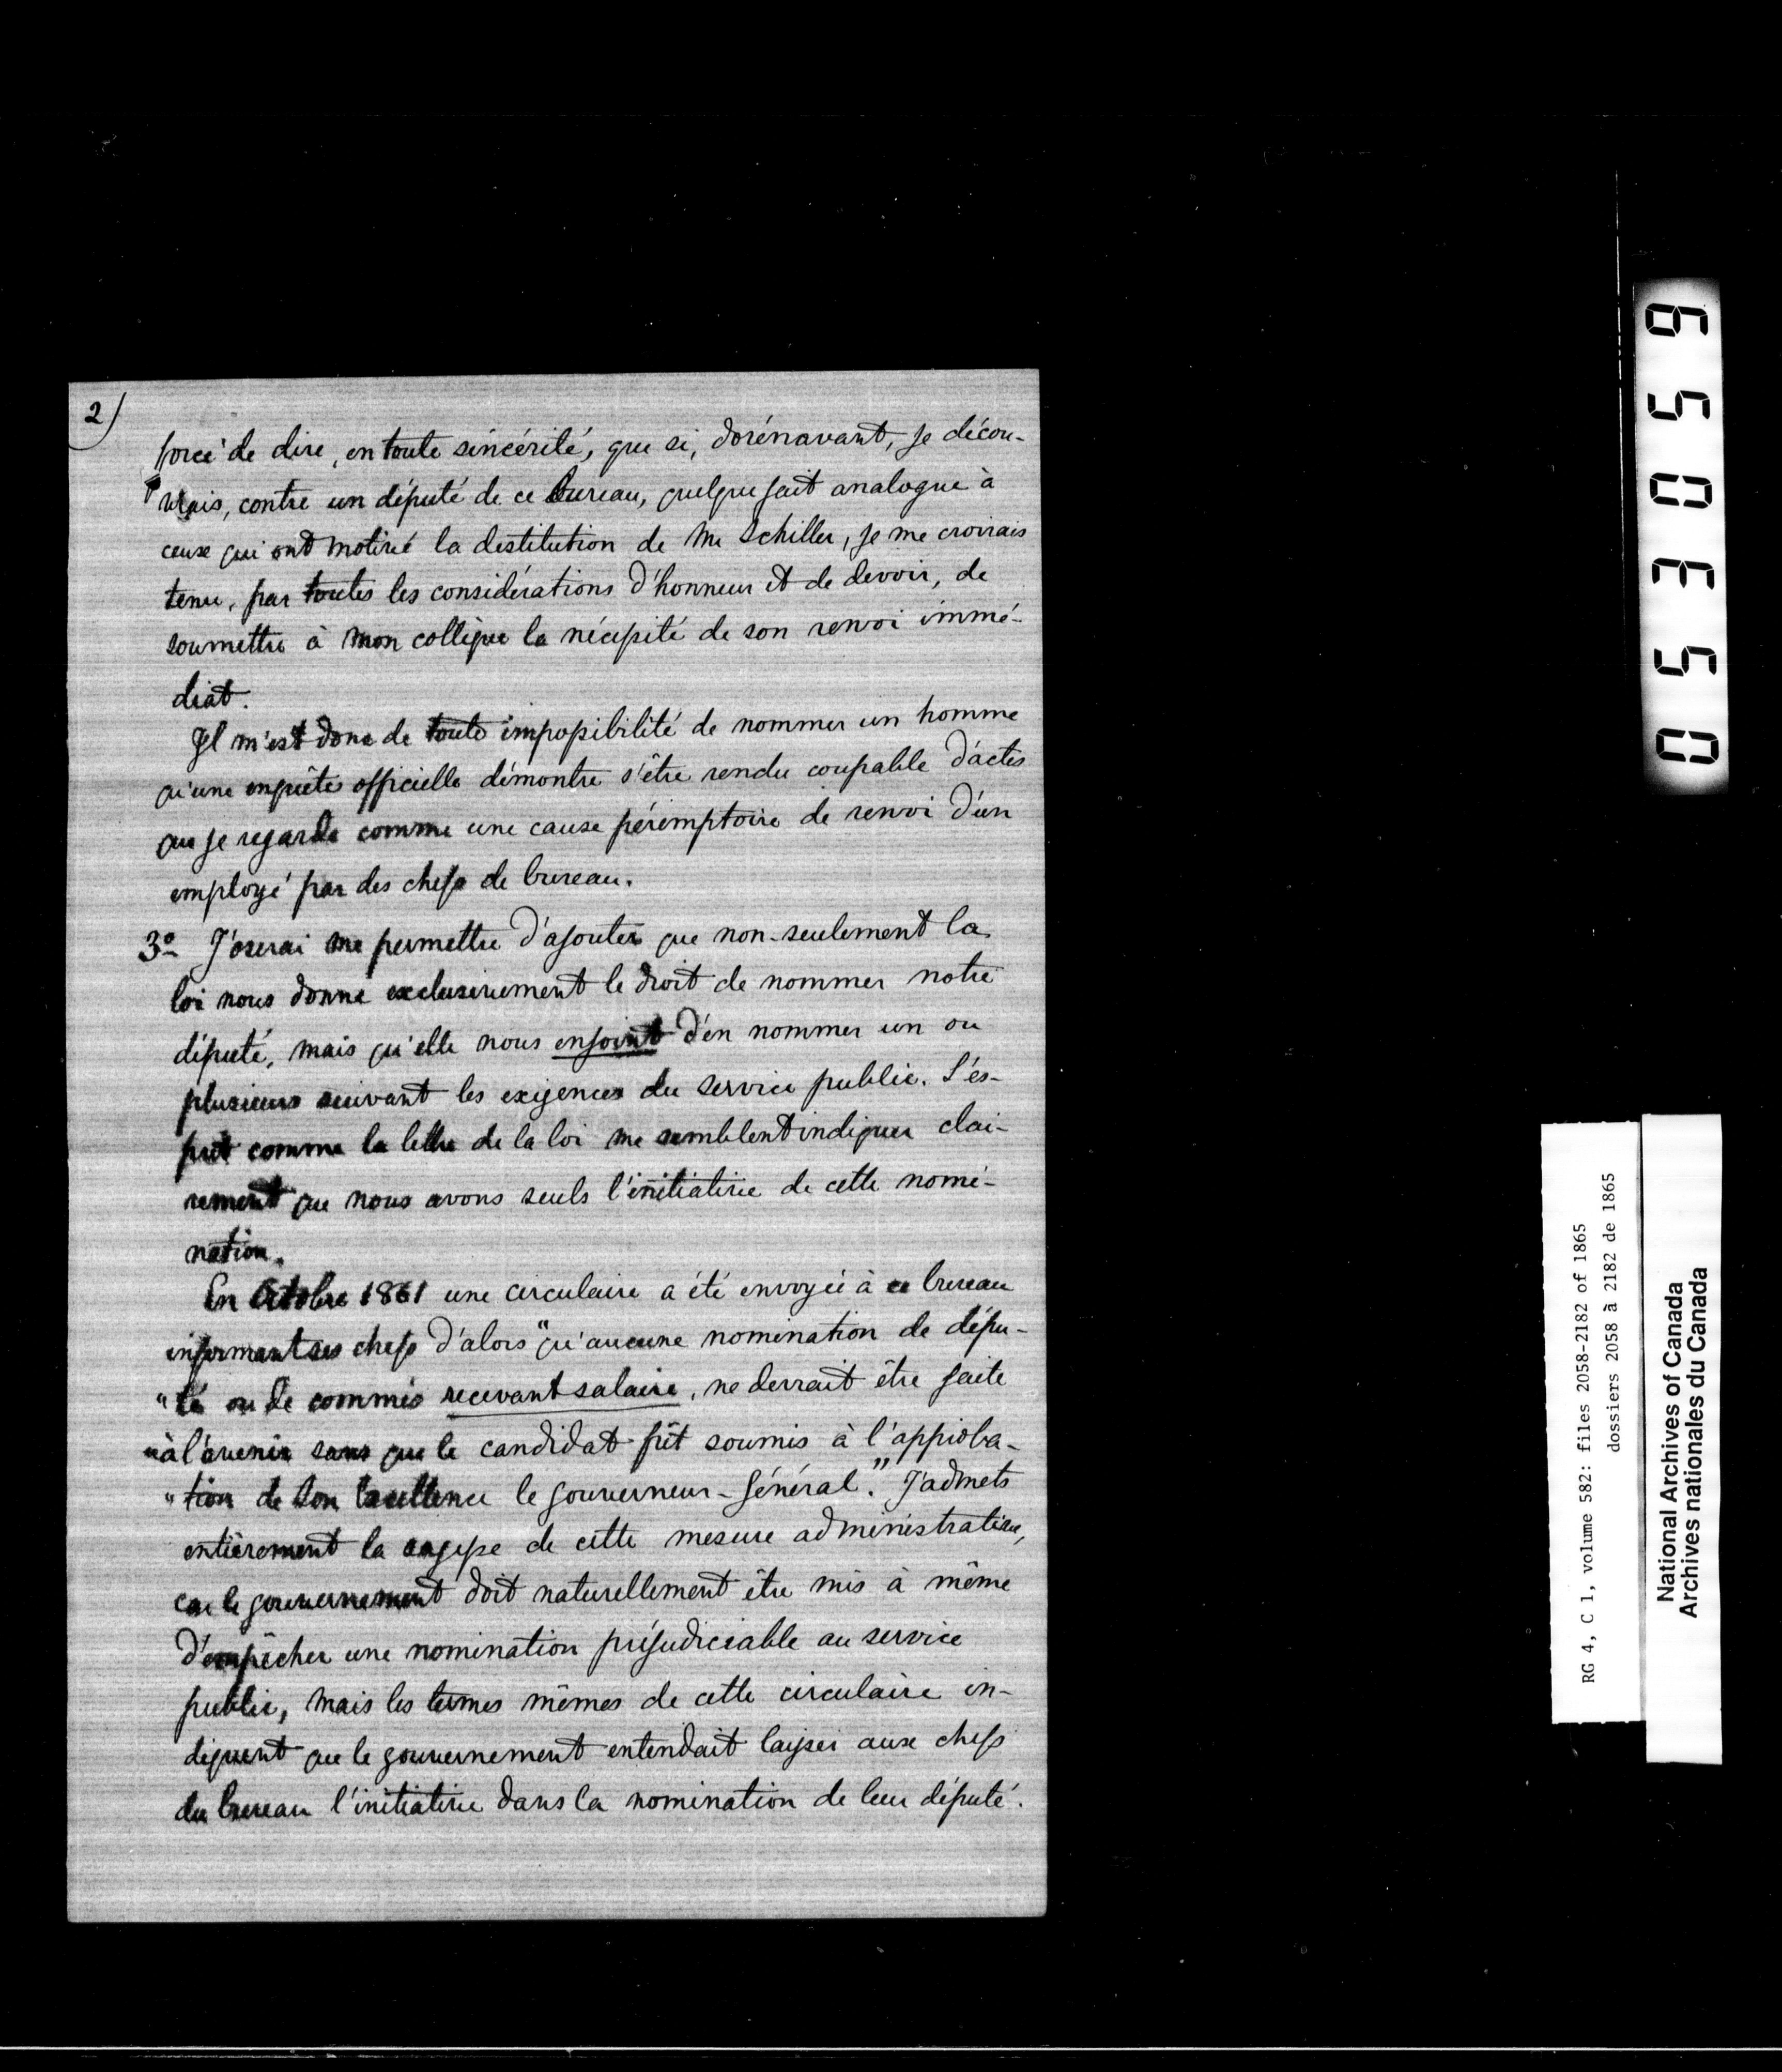 2)
forcé de dire, en toute sincérité, que si, dorénavant, je décou-
vrais, contre un député de ce bureau, quelque fait analogue à
ceux qui ont motivé la destitution de Mr Schiller, je me croirais
tenu, par toutes les considérations d'honneur et de devoir, de
soumettre à mon collègue la nécessité de son renvoi immé-
diat.
Il m'est donc de toute impossibilité de nommer un homme
qu'une enquête officielle démontre s'être rendu coupable d'actes
que je regarde comme une cause péremptoire de renvoi d'un
employé par des chefs de bureau.
3º J'oserai me permettre d'ajouter que non-seulement la
loi nous donne exclusivement le droit de nommer notre
député, mais qu'elle nous enjoint d'en nommer un ou
plusieurs suivant les exigences du service public. L'es-
prit comme la lettre de la loi me semblent indiquer clai-
rement que nous avons seuls l'initiative de cette nomi-
nation.
En Octobre 1861 une circulaire a été envoyée à ce bureau
informant ses chefs d'alors "qu'aucune nomination de dépu-
"té ou de commis recevant salaire, ne devrait être faite
"à l'avenir sans que le candidat fût soumis à l'approba-
"tion de Son Excellence le gouverneur-général". J'admets
entièrement la sagesse de cette mesure administrative,
car le gouvernement doit naturellement être mis à même
d'empêcher une nomination préjudiciable au service
public, mais les termes mêmes de cette circulaire in-
diquent que le gouvernement entendait laisser aux chefs
du bureau l'initiative dans la nomination de leur député.
050359
RG 4, C 1, volume 582: files 2058-2182 of 1865
dossiers 2058 à 2182 de 1865
National Archives of Canada
Archives nationales du Canada